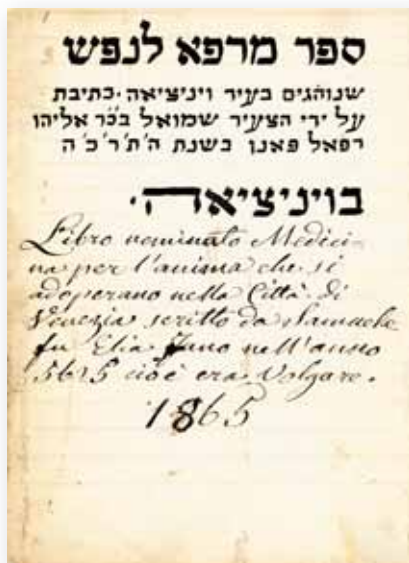 ספר מרפא לנפש
שנוהגים בעיר ויניציאה · כתיבת
על ידי הצעיר שמואל בכ״ר אליהו
רפאל פאנו בשנת ה'ת'ר'כ'ה
בויניציאה ·
Libro nominato Medici-
na per l'anima che si
adoperano nella Città di
Venezia scritto da Samuele
fu Elia Fano nell'anno
5625 cioè era Volgare.
1865